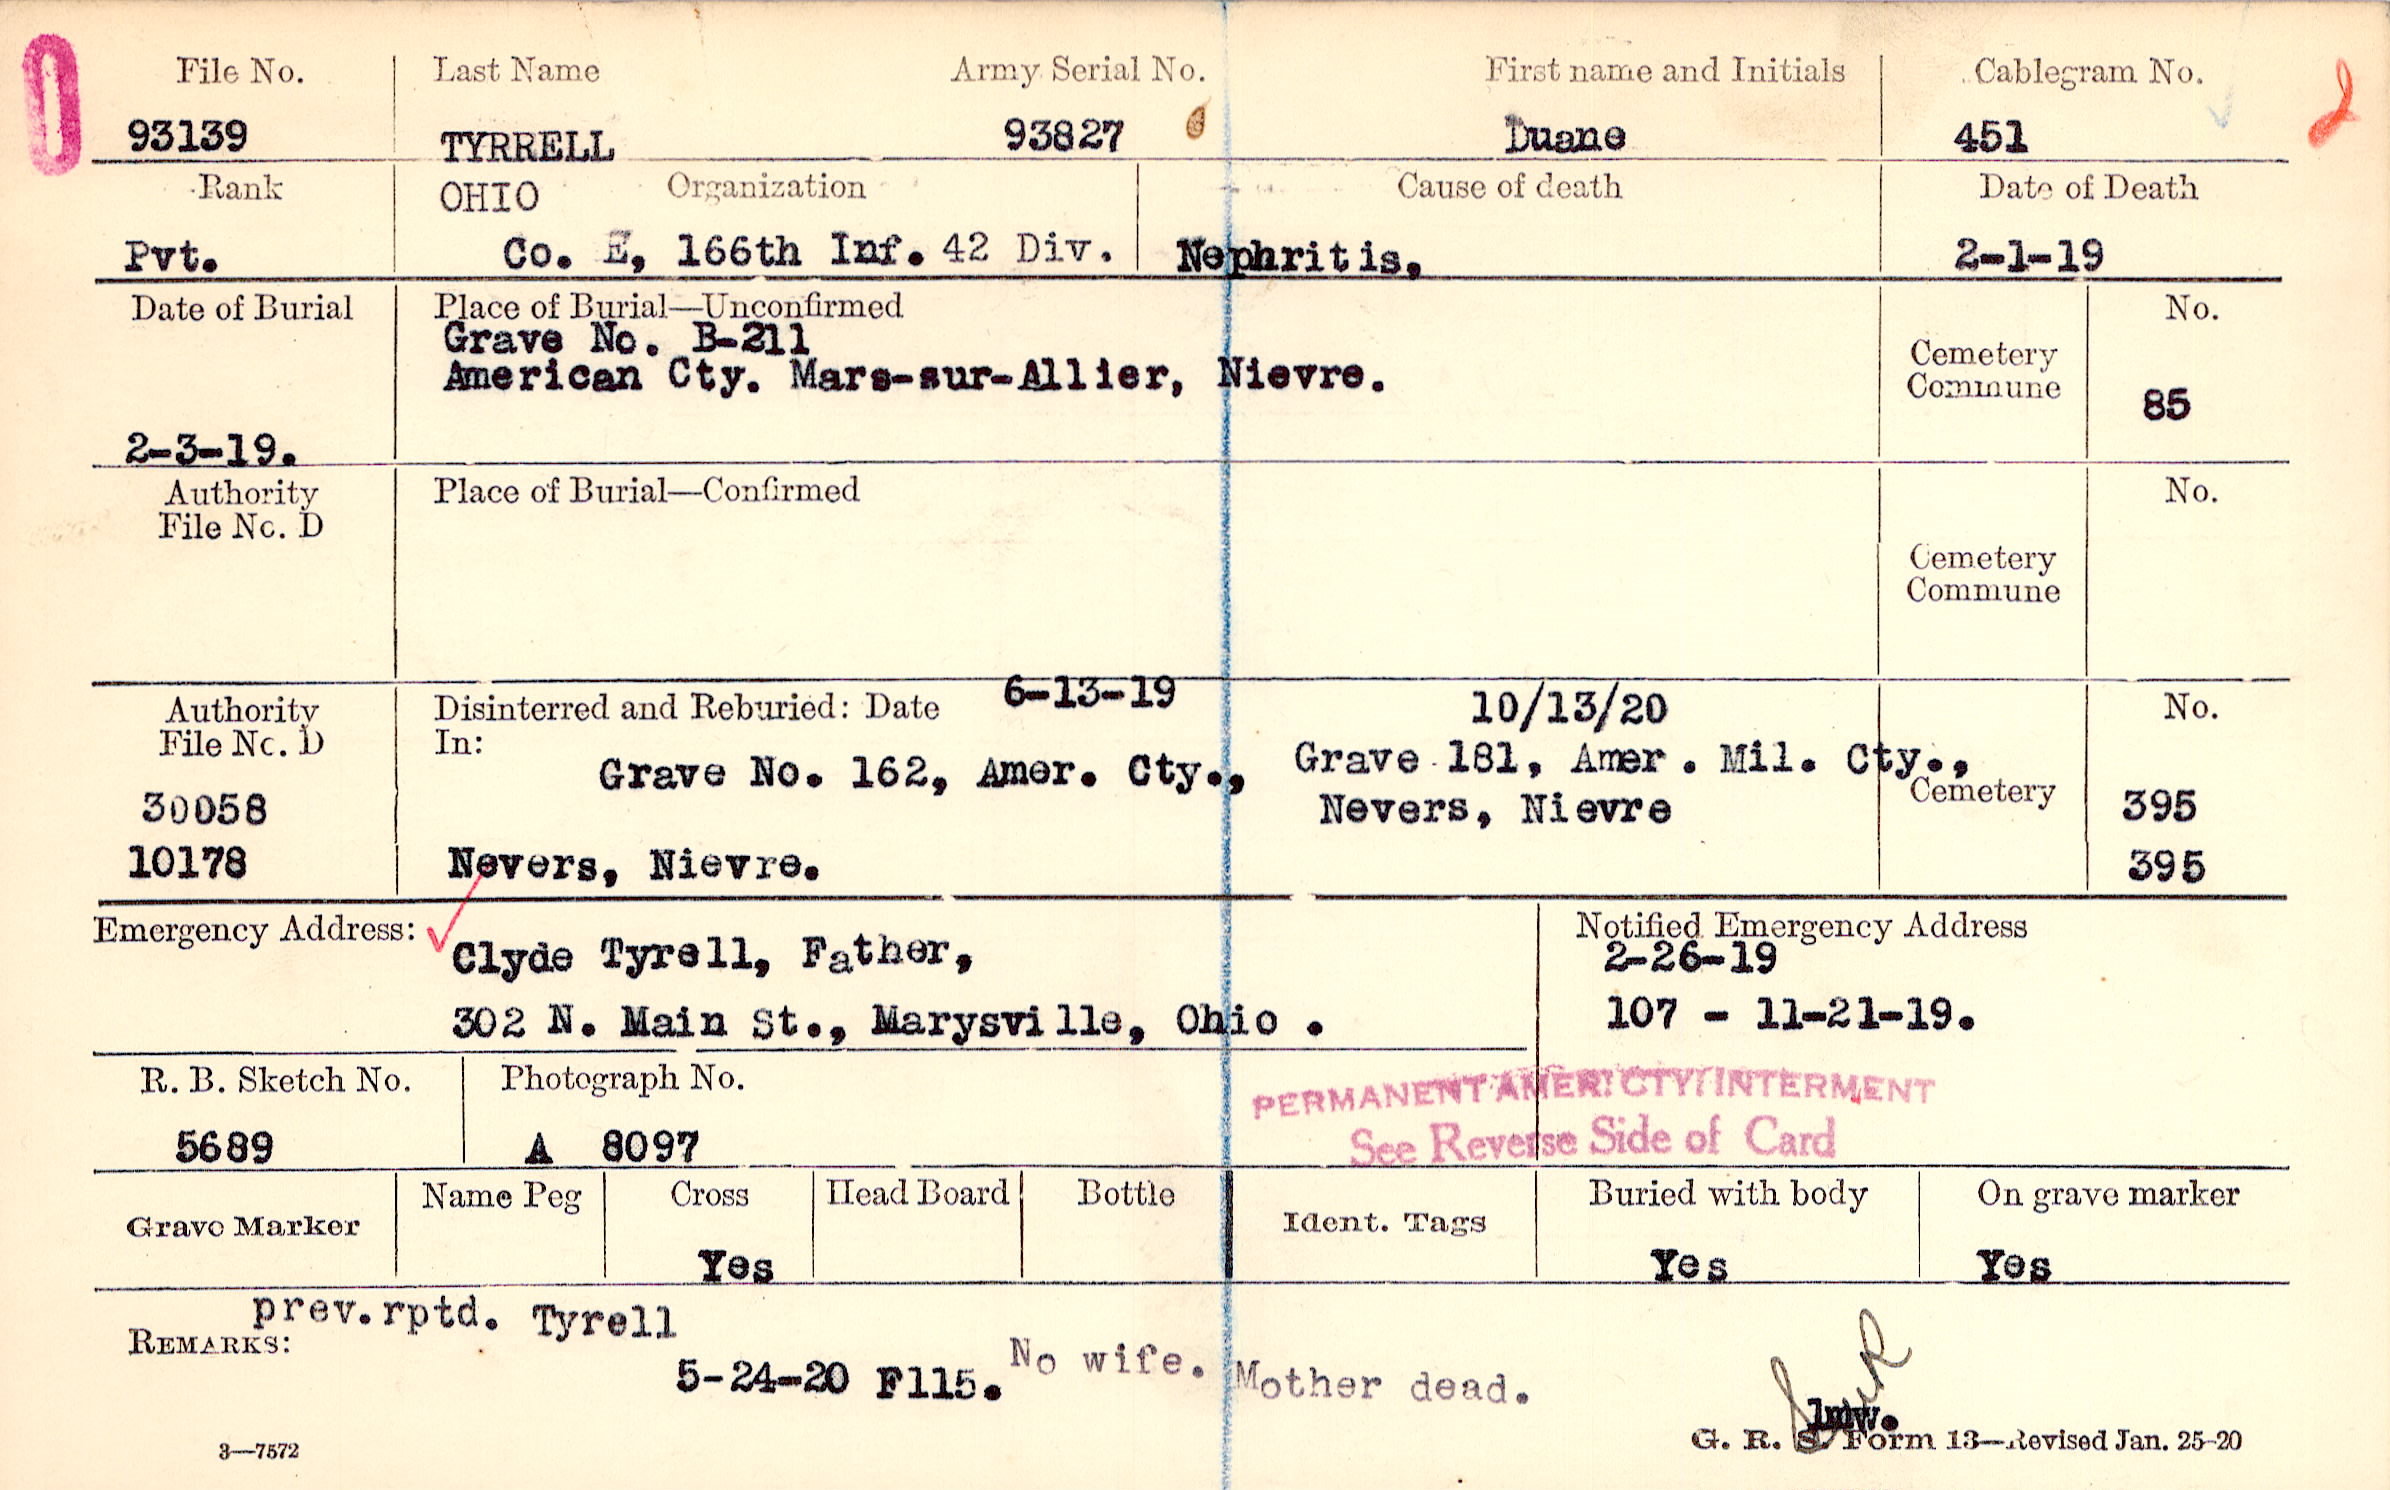 File No. Last Name Army Serial No. First name and Initials Cablegram No.
93139 TYRRELL 93827 Duane 451
Rank OHIO Organization Cause of death Date of Death
Pvt. Co. E, 166th Inf. 42 Div. Nephritis, 2-1-19
Date of Burial Place of Burial—Unconfirmed No.
Grave No. B-211
American Cty. Mars-sur-Allier, Nievre.
Cemetery
Commune
85
2-3-19.
Authority Place of Burial—Confirmed No.
File No. D
Cemetery
Commune
Authority Disinterred and Reburied: Date 6-13-19 10/13/20 No.
File No. D In:
Grave No. 162, Amer. Cty., Grave 181, Amer. Mil. Cty.,
30058 Nevers, Nievre Cemetery 395
10178 Nevers, Nievre. 395
Emergency Address: Notified Emergency Address
Clyde Tyrell, Father, 2-26-19
302 N. Main St., Marysville, Ohio . 107 - 11-21-19.
R. B. Sketch No. Photograph No. PERMANENT AMER. CTY. INTERMENT
5689 A 8097 See Reverse Side of Card
Grave Marker Name Peg Cross Head Board Bottle Ident. Tags Buried with body On grave marker
Yes Yes Yes
prev.rptd. Tyrell
REMARKS:
5-24-20 F115. No wife. Mother dead.
lmw.
3—7572 G. R. S. Form 13—Revised Jan. 25-20